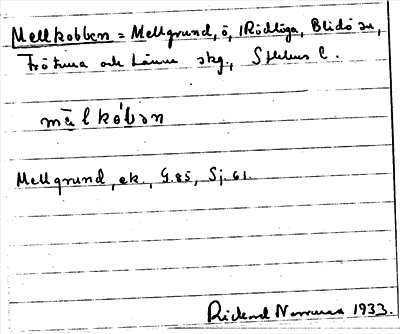 Mellkobben = Mellgrund, ö, Rödlöga, Blidö sn,
Frötuna och Länna skg., Sthlms l.
mälkòbən
Mellgrund, ek., G.85, Sj.61.
Rickard 1933.